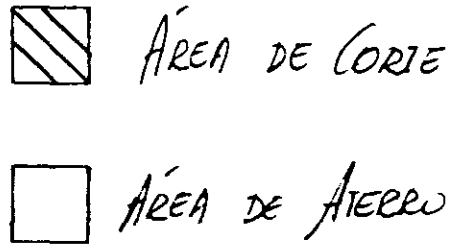 ÁREA DE CORTE
ÁREA DE ATERRO